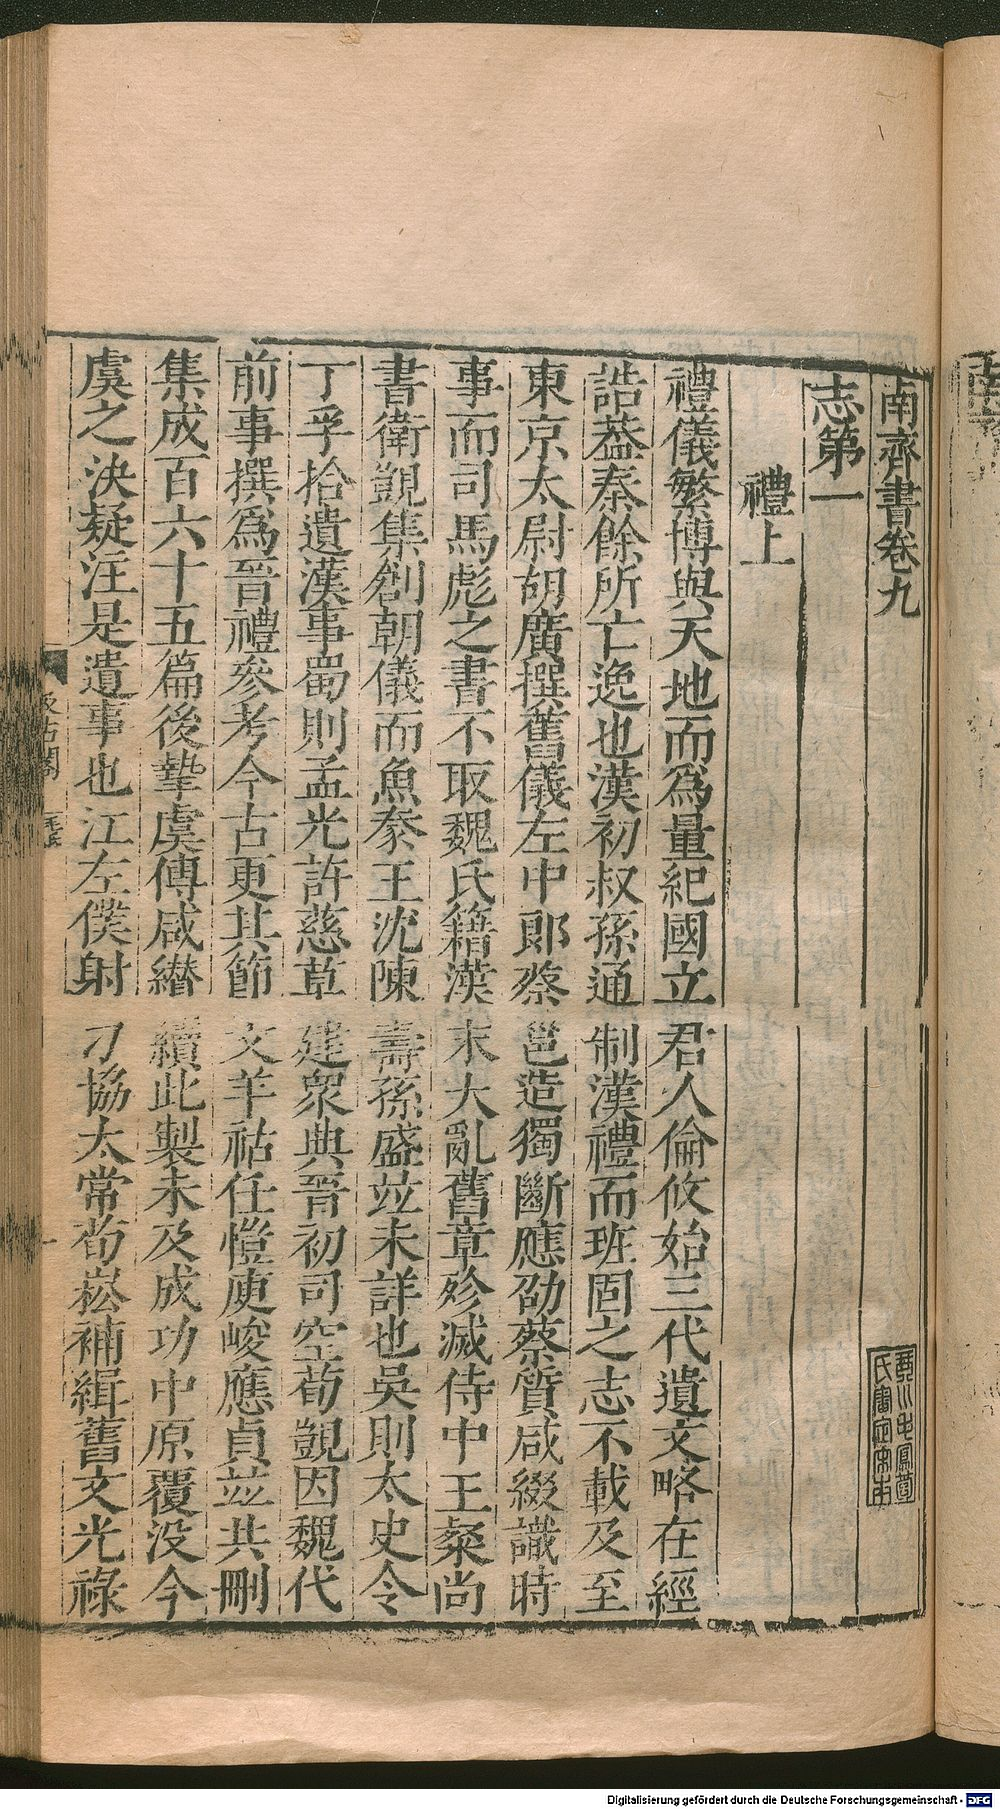 南齊書卷九
志第一
禮上
禮儀繁博與天地而爲量紀國立君人倫攸始三代遺文略在經
誥葢秦餘所亡逸也漢初叔孫通制漢禮而班固之志不載及至
東京太尉胡廣撰舊儀左中郞蔡邕造獨斷應劭蔡質咸綴識時
事而司馬彪之書不取魏氏籍漢末大亂舊章殄滅侍中王粲尚
書衛覬集創朝儀而魚豢王沈陳壽孫盛竝未詳也吳則太史令
丁孚拾遺漢事蜀則孟光許慈草建衆典晉初司空荀覬因魏代
前事撰爲晉禮參考今古更其節文羊祜任愷庾峻應貞竝共刪
集成百六十五篇後摯虞傅咸纉續此製未及成功中原覆没今
虞之決疑注是遺事也江左僕射刁協太常荀崧補緝舊文光祿
汲古閣
毛氏
一
Digitalisierung gefördert durch die Deutsche Forschungsgemeinschaft - DFG